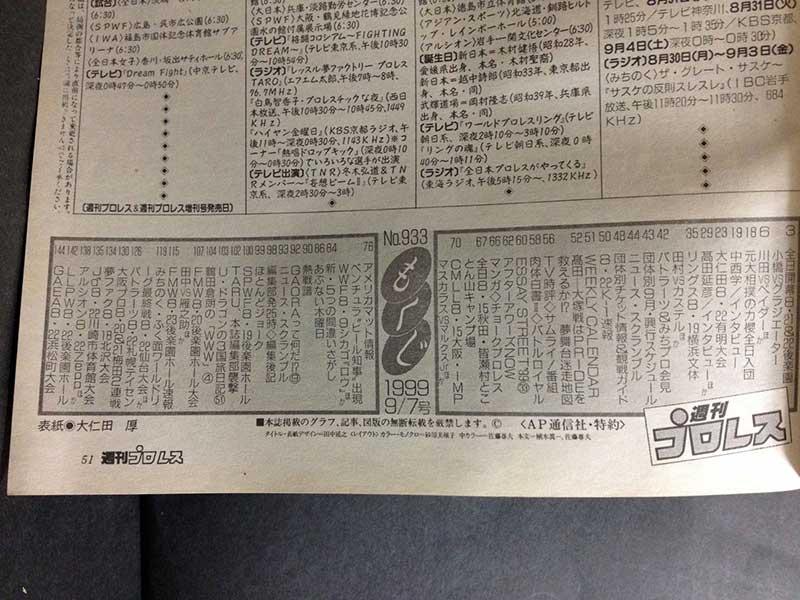 (SPWF)広島・呉市広公園(6:30)
(IWA)福島市国体記念体育館サブアリーナ(6:30)
(全日本女子)香川・坂出サティホール(6:30)
(テレビ)「Dream Fight」(中京テレビ、深夜0時47分〜0時50分)
(週刊プロレス&週刊プロレス増刊号発売日)
(大日本)兵庫・淡路勤労センター(6:30)
(SPWF)大阪・鶴見緑地花博記念公園水の館付属展示場(6:30)
(テレビ)「格闘コロシアム〜FIGHTING DREAM〜」(テレビ東京系、午後10時30分〜10時54分)
(ラジオ)「レッスル夢ファクトリー プロレスTARO」(エフエム太郎、午後7時〜8時、76.7MHz)
「白鳥智香子・プロレスチックな夜」(西日本放送、午後10時30分〜10時45分、1449KHz)
「ハイヤング金曜日」(KBS京都ラジオ、午後11時〜深夜0時30分、1143KHz)※コーナー「熱唱ドロップキック」(深夜0時10分〜0時30分)でいろいろな選手が出演
(テレビ出演)(TNR)冬木弘道&TNRメンバー〜「妄想ビームⅡ」(テレビ東京系、深夜2時30分〜3時)
(大日本)徳島市立体育館(6:30)
(アジアン・スポーツ)北海道・釧路ヒルトップ・レインボーホール(5:00)
(アルシオン)岩手・一関文化センター(6:30)
(誕生日)新日本=木村健悟(昭和28年、愛媛県出身、本名・木村聖裔)
新日本=越中詩郎(昭和33年、東京都出身、本名・同)
武輝道場=岡村隆志(昭和39年、兵庫県出身、本名・同)
(テレビ)「ワールドプロレスリング」(テレビ朝日系、深夜2時10分〜3時10分)
「リングの魂」(テレビ朝日系、深夜0時40分〜1時11分)
(ラジオ)「全日本プロレスがやってくる」(東海ラジオ、午後5時15分〜、1332KHz)
8月31日(火)
9月4日(土)深夜0時〜0時30分)
(ラジオ)8月30日(月)〜9月3日(金)
(みちのく)ザ・グレート・サスケ〜「サスケの反則スレスレ」(IBC岩手放送、午後11時20分〜11時30分、684KHz)
No.933
もくじ
1999
9/7号
6 小橋VSグラジエーター
18 元大相撲の力櫻全日入団
19 中西学/インタビュー
23 大仁田8・22有明大会
29 高田延彦/インタビューほか
35 リングス8・19横浜文体
42 田村VSカステル ほか
43 バトラーツ&みちプロ会見
44 ニュース・スクランブル
48 団体別9月・興行スケジュール
50 8・22K-1速報
51 WEEKLY CALENDAR
58 TV時評◇サムライ!番組
60 肉体白書Ⅱ◇バトルロイヤル
62 ESSAY STREET'99
66 アフターアワーズNOW
67 マンガ◇チョークプロレス
70 CMLL8・15大阪・IMP
マスカラスVSマルクスJr.ほか
76 アメリカマット情報
ベンチュラ・ビール知事・出現
WWF8・9シカゴ
84 新・5つの間違いさがし
86 あぶない木曜日
90 熱戦譜
92 GAORAって何だ!?
93 ニュース・スクランブル
98 編集部発25時◇編集後記
99 ほとんどジョーク
100 SPWF8・19後楽園ホール
102 TARU、本誌編集部襲撃
104 冬木倉庫の「WWW」④
107 FMW8・20後楽園ホール
115 FMW8・23後楽園ホール速報
田中VS雁之助 ほか
119 みちのく・ふく面ワールドリーグ最終戦8・22仙台大会
126 バトラーツ8・22札幌テイセン
130 大阪プロ8・20&21梅田2連戦
134 夢ファク8・18北沢大会
135 Jd'8・22川崎市体育館大会
138 アルシオン8・22Zeppほか
142 LLPW8・22後楽園大会
144 GAEA8・22浜松町大会
表紙●大仁田 厚
■本誌掲載のグラフ、記事、図版の無断転載を厳禁します。©
〈AP通信社・特約〉
週刊プロレス
51 週刊プロレス